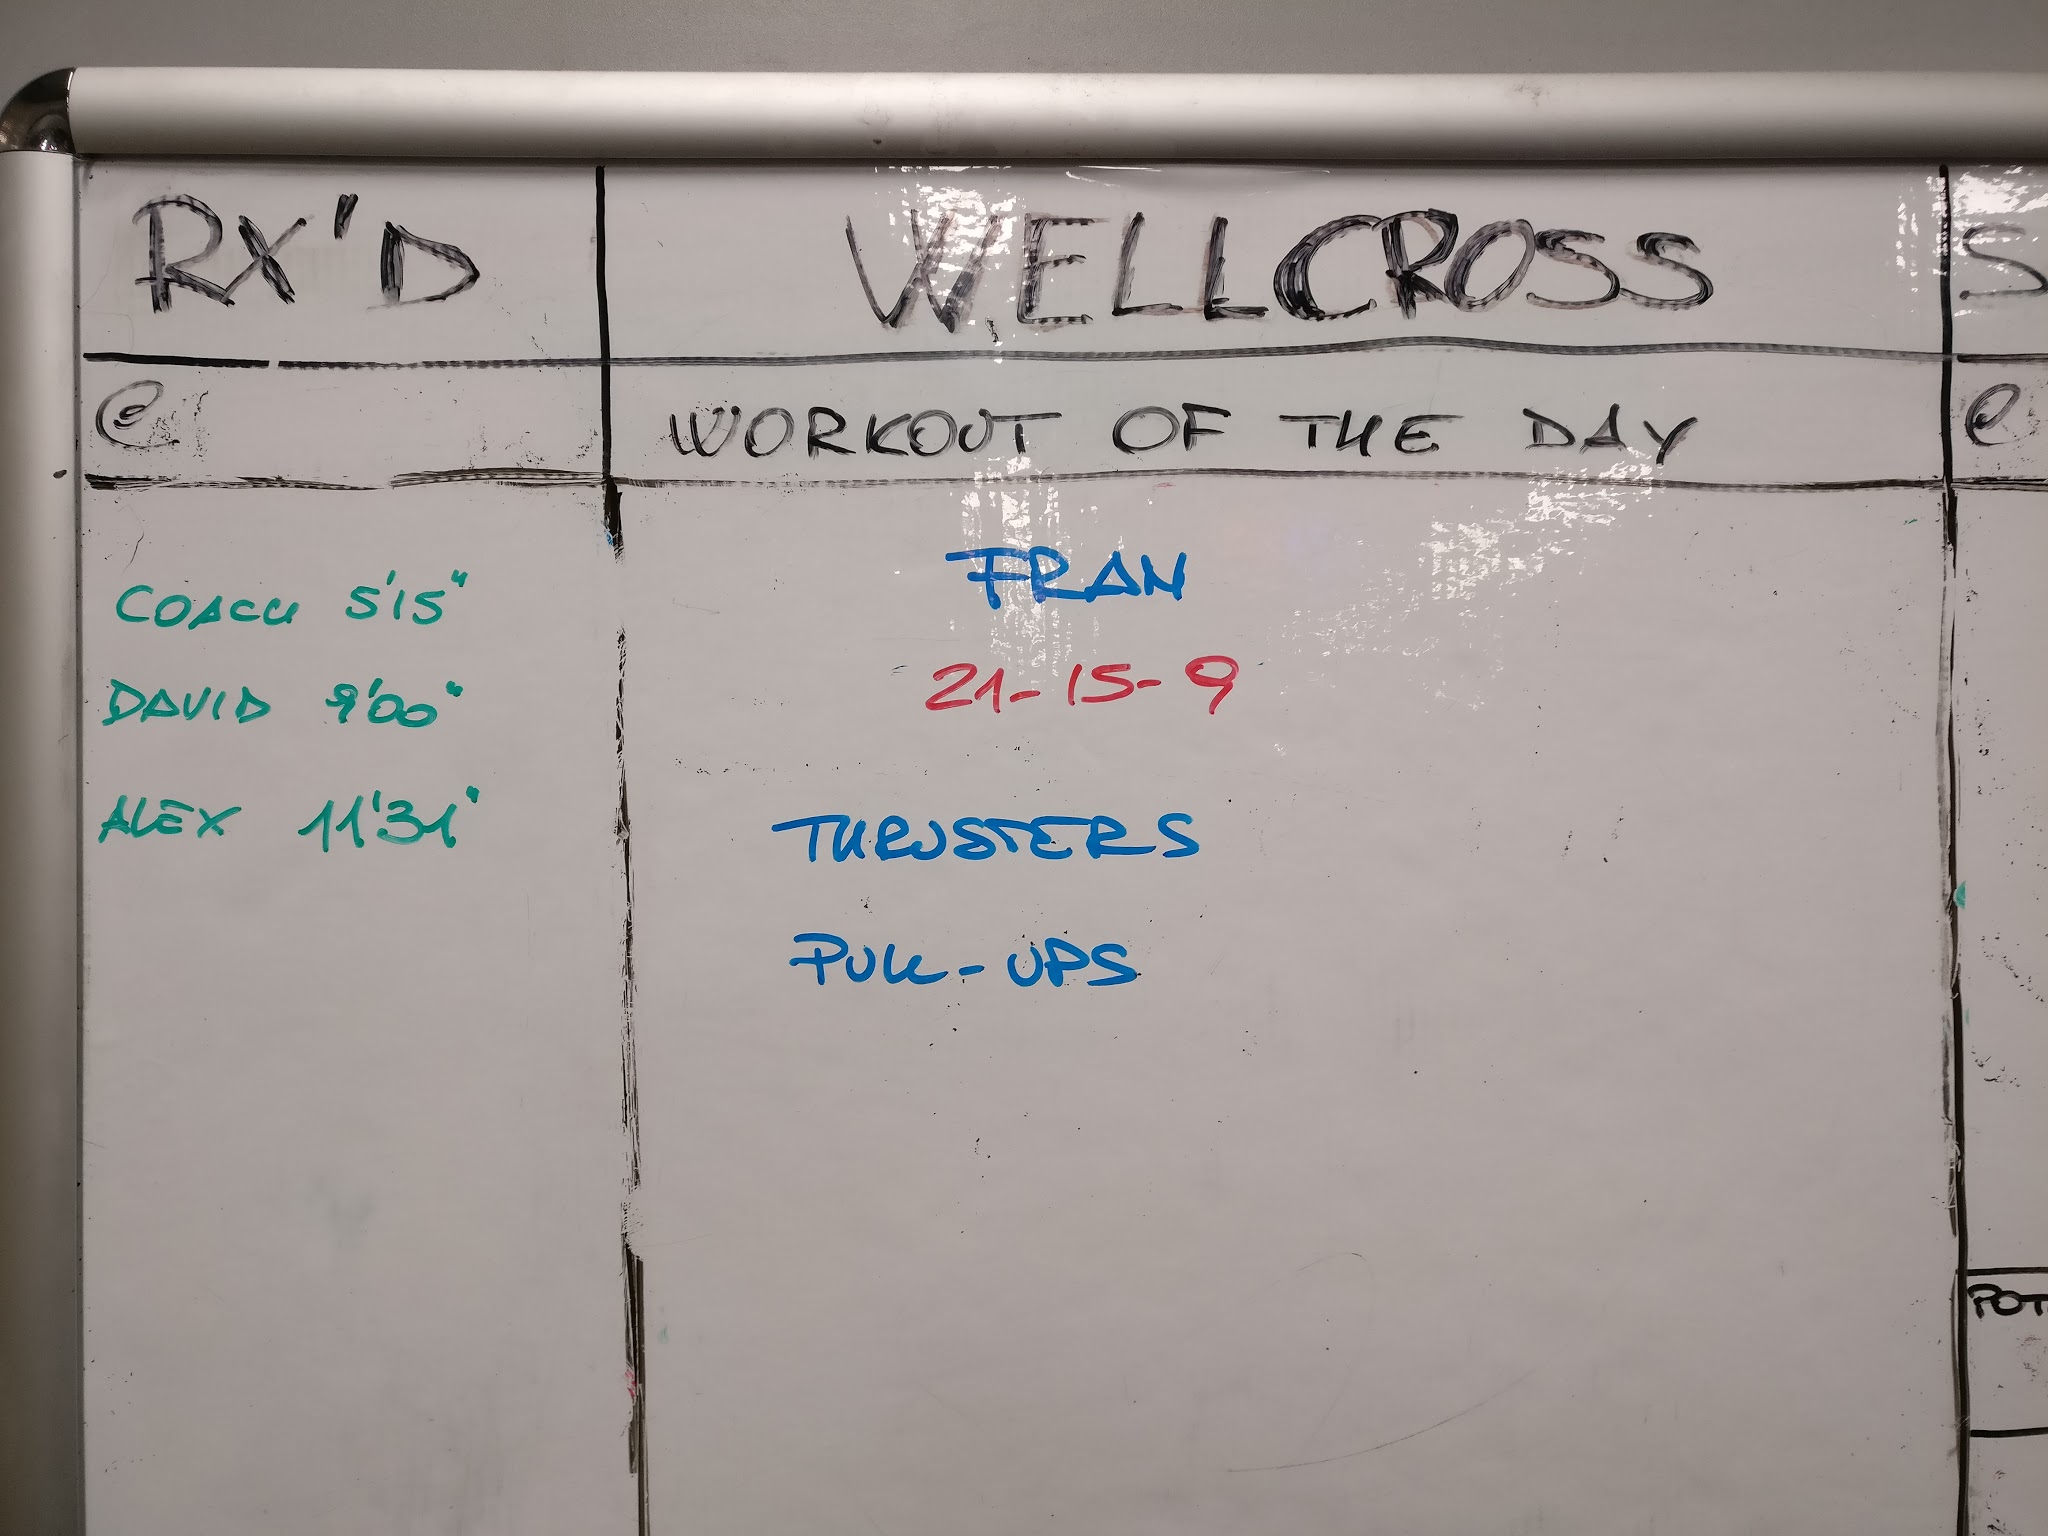 RX'D
WELLCROSS
S
@
WORKOUT OF THE DAY
@
FRAN
21-15-9
THRUSTERS
PULL-UPS
COACH 5'15"
DAVID 9'00"
ALEX 11'31"
POT